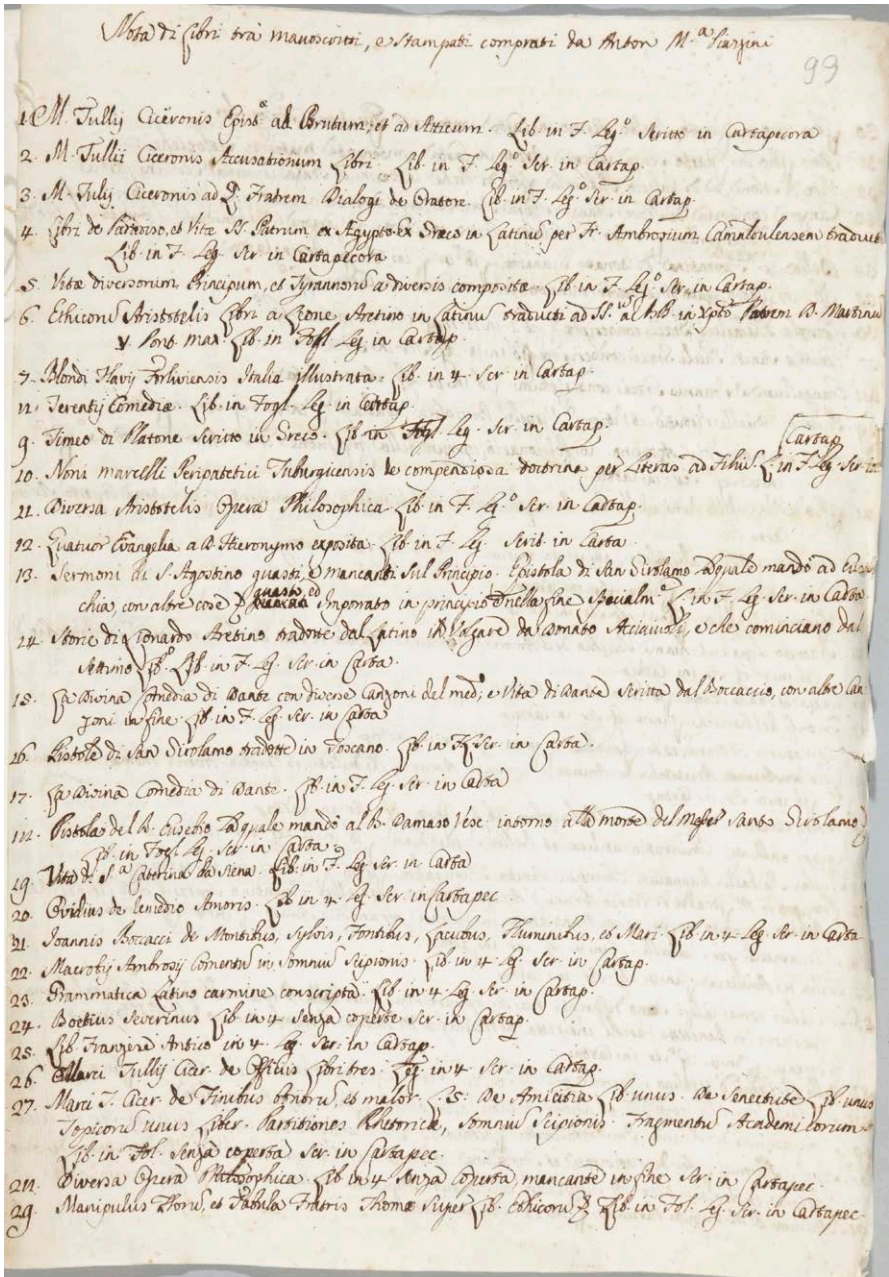 Nota di Libri trà manoscritti, e stampati comprati da Anton M.a
99
1. M. Tullij Ciceronis Epist.e ad Brutum, et ad Atticum. Lib. in F. Leg.o Scritto in Cartapecora
2. M. Tullii Ciceronis Accusationum Libri. Lib. in F. Leg.o Scr. in Cartap.
3. M. Tulij Ciceronis ad Q. Fratrem Dialogi de Oratore. Lib. in F. Leg.o Scr. in Cartap.
4. Libri de Paradiso, et Vitæ SS. Patrum ex Ægypto. Ex Græco in Latinũ per Fr. Ambrosium Camaldulensem traducti
Lib. in F. Leg. Scr. in Cartapecora
5. Vitæ diversorum Principum, et Tyrannorũ a diversis compositæ. Lib. in F. Leg.o Scr. in Cartap.
6. Ethicorũ Aristotelis Libri a Leone Aretino in Latinũ traducti ad SS.m ac BB. in Xpto Patrem D. Martinũ
V. Pont. Max. Lib. in Fogl. Leg. in Cartap.
7. Blondi Flavij Forliviensis Italia illustrata. Lib. in 4. Scr. in Cartap.
8. Terentij Comediæ. Lib. in Fogl. Leg. in Cartap.
9. Timeo di Platone scritto in Greco. Lib. in Fogl. Leg. Scr. in Cartap.
Cartap
10. Noni Marcelli Peripatetici Tuburgicensis de compendiosa doctrina per Literas ad Filiũ. L. in F. Leg. Scr. in
11. Diversa Aristotelis Opera Philosophica. Lib. in F. Leg.o Scr. in Cartap.
12. Quatuor Evangelia a B. Hieronymo exposita. Lib. in F. Leg. Scrit. in Carta.
13. Sermoni di S. Agostino guasti, e mancanti sul Principio. Epistola di San Girolamo la quale mandò ad Eusto-
chia, con altre cose guasto, ed Imporrato in principio, e nella fine specialm.e L. in F. Leg. Scr. in Carta.
14. Storie di Lionardo Aretino tradotte dal Latino in Volgare da Donato Acciaiuoli, e che cominciano dal
Settimo Lib.o Lib. in F. Leg. Scr. in Carta.
15. La Divina Comedia di Dante con diverse Canzoni del med.o, e Vita di Dante Scritta dal Boccaccio, con altre Can-
zoni in fine. Lib. in F. Leg. Scr. in Carta
16. Pistole di San Girolamo tradotte in Toscano. Lib. in F. Scr. in Carta.
17. La Divina Comedia di Dante. Lib. in F. Leg. Scr. in Carta
18. Pistola del B. Eusebio la quale mandò al B. Damaso Vesc. intorno alla morte del Santo Girolamo
Lib. in Fogl. Leg. Scr. in Carta
19. Vita di S.a Caterina da Siena. Lib. in F. Leg. Scr. in Carta
20. Ovidius de remedio Amoris. Lib. in 4. Leg. Scr. in Cartapec.
21. Joannis Boccacci de Montibus, Sylvis, Fontibus, Lacubus, Fluminibus, et Mari. Lib. in 4. Leg. Scr. in Carta
22. Macrobij Ambrosij Comentũ in Somniũ Scipionis. Lib. in 4. Leg. Scr. in Cartap.
23. Grammatica Latino carmine conscripta. Lib. in 4. Leg. Scr. in Cartap.
24. Boetius Severinus Lib. in 4. Senza coperte Scr. in Cartap.
25. Lib. Franzese Antico in 4. Leg. Scr. in Cartap.
26. Marci Tullij Cicer. de Officiis Libri tres. Leg. in 4. Scr. in Cartap.
27. Marci T. Cicer. de Finibus bonorũ, et malor. L. 5. De Amicitia Lib. unus. De Senectute Lib. unus
Topicorũ unus Liber. Partitiones Rhetoricæ, Somniũ Scipionis. Fragmentũ Academicorum.
Lib. in Fol. Senza coperta Scr. in Cartapec.
28. Diversa Opera Philosophica. Lib. in 4. Senza Coperta, mancante in fine Scr. in Cartapec.
29. Manipulus Florũ, et Tabula Fratris Thomæ Super Lib. Ethicorũ Lib. in Fol. Leg. Scr. in Cartapec.